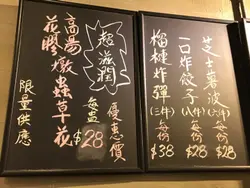 芝士薯波
(六件)
每份
$28
一口炸餃子
(八件)
每份
$28
榴槤炸彈
(三件)
每份
$38
超滋潤
優惠價
每盅
$28
高湯
花膠燉蟲草花
限量供應